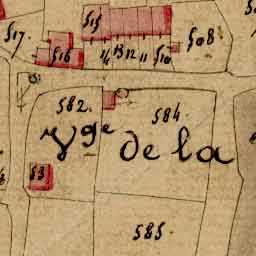 515
517. 508.
516 14 13 12 11 510
582. 584.
Vge de la
53
585.